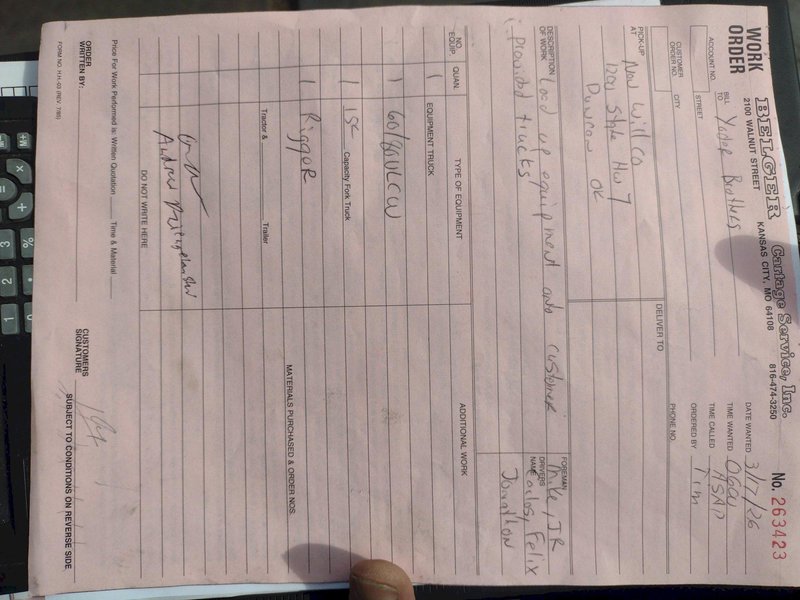 WORK ORDER
BELGER Cartage Service, Inc.
2100 WALNUT STREET KANSAS CITY, MO 64108 816-474-3250
No. 263423
ACCOUNT NO.
BILL TO Yoder Brothers
STREET
CITY
CUSTOMER ORDER NO.
DATE WANTED 3/17/26
TIME WANTED
TIME CALLED ASAP
ORDERED BY Tim
PHONE NO.
PICK-UP AT New Will Co
1201 State Hwy 7
Duncan OK
DELIVER TO
DESCRIPTION OF WORK Load up equipment onto customer
provided trucks
FOREMAN Mike, JR
DRIVERS NAME Carlos, Felix
Jonathon
NO. EQUIP.
QUAN.
TYPE OF EQUIPMENT
ADDITIONAL WORK
1 EQUIPMENT TRUCK
1 60/80
1 15K Capacity Fork Truck
1 Rigger
Tractor & Trailer
MATERIALS PURCHASED & ORDER NOS.
DO NOT WRITE HERE
Price For Work Performed is: Written Quotation Time & Material
ORDER WRITTEN BY:
CUSTOMERS SIGNATURE
SUBJECT TO CONDITIONS ON REVERSE SIDE
FORM NO. H.H.-03 (REV. 7/85)